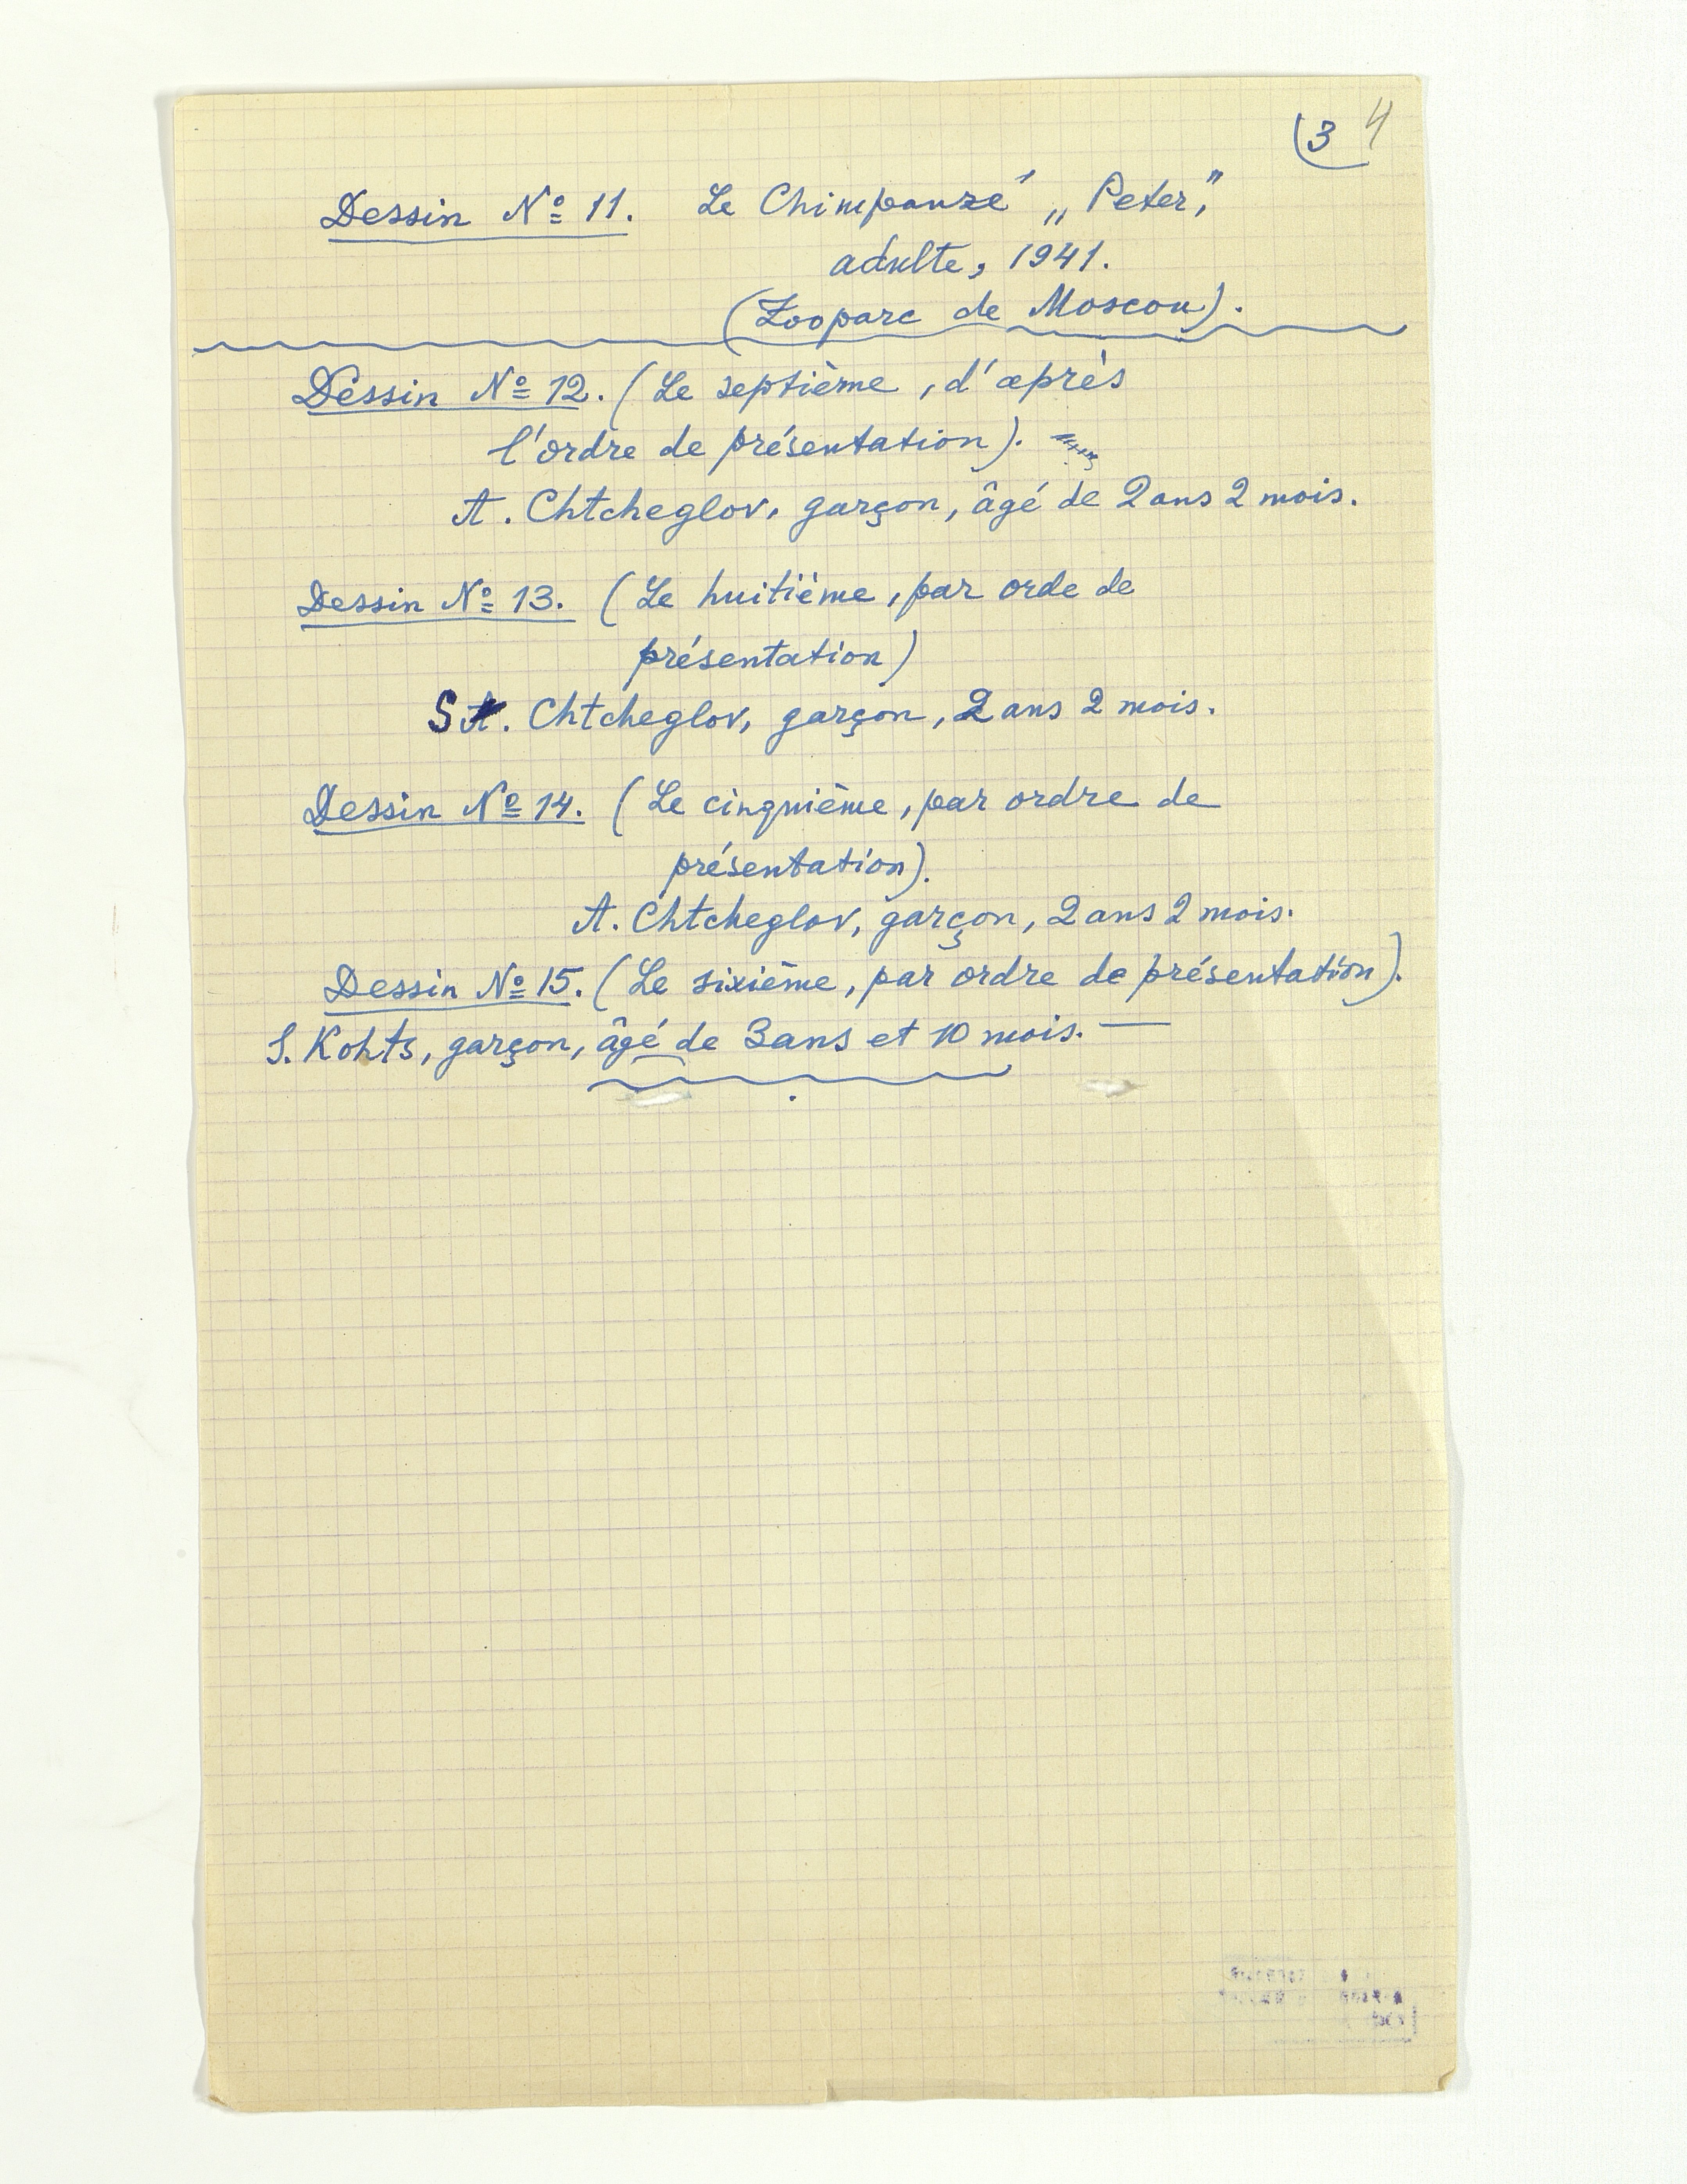 (3 4
Dessin № 11. Le Chimpanzé „Peter",
adulte, 1941.
(Zooparc de Moscou).
Dessin № 12. (Le septième, d'après
l'ordre de présentation).
A. Chtcheglov, garçon, âgé de 2 ans 2 mois.
Dessin № 13. (Le huitième, par orde de
présentation)
S. Chtcheglov, garçon, 2 ans 2 mois.
Dessin № 14. (Le cinquième, par ordre de
présentation).
A. Chtcheglov, garçon, 2 ans 2 mois.
Dessin № 15. (Le sixième, par ordre de présentation).
S. Kohts, garçon, âgé de 3 ans et 10 mois. —